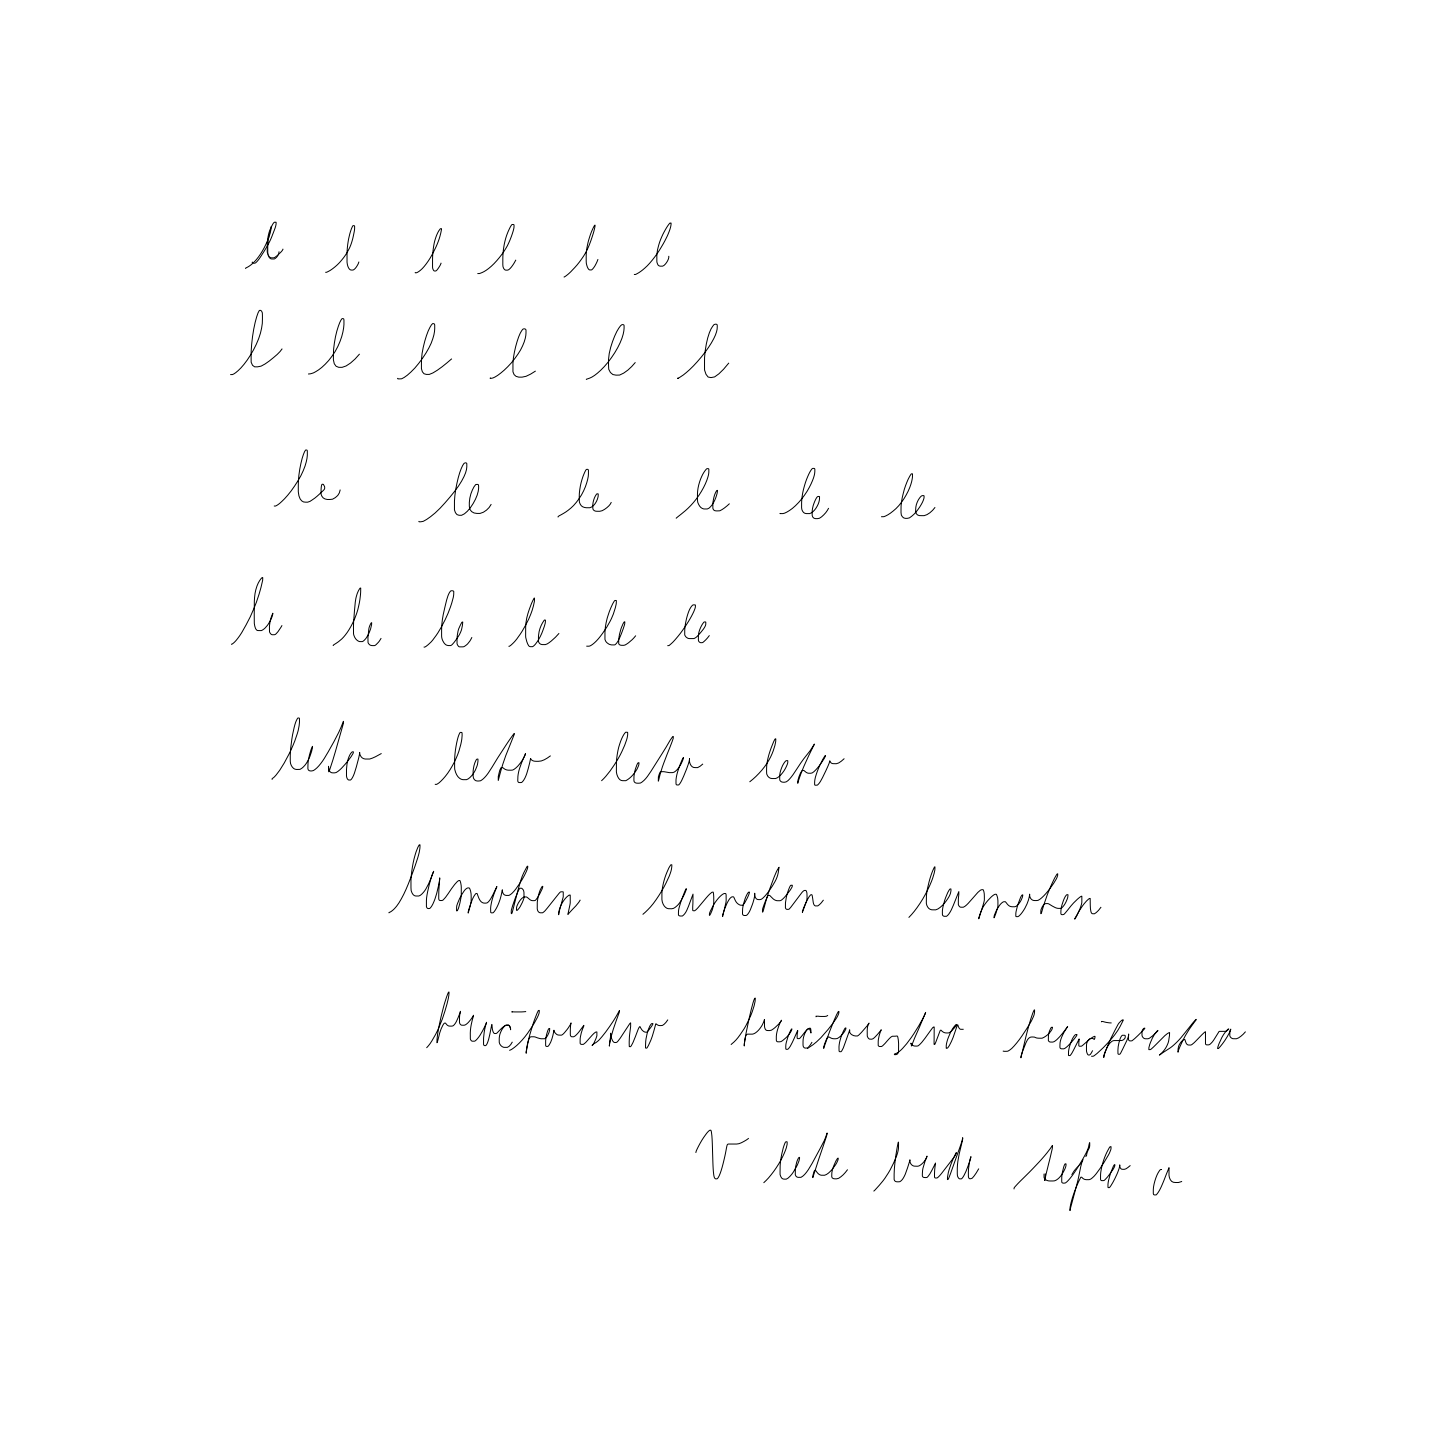 l l l l l l
l l l l l l
le le le le le le
le le le le le le
leto leto leto leto
lamoken lamoken lamoken
tračtorstvo tračtorstvo tračtorstvo
V lete bude teplo a